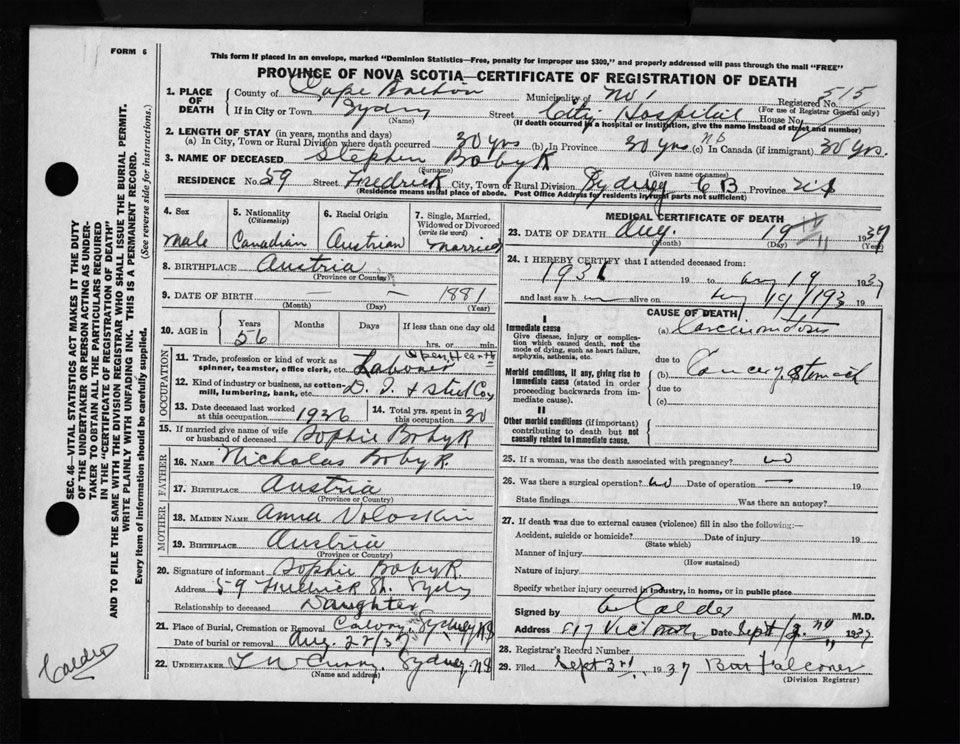 FORM 6
This form If placed in an envelope, marked "Dominion Statistics—Free, penalty for improper use $300," and properly addressed will pass through the mail "FREE"
PROVINCE OF NOVA SCOTIA—CERTIFICATE OF REGISTRATION OF DEATH
1. PLACE OF DEATH County of Cape Breton Municipality of Registered No. 515
(For use of Registrar General only)
If in City or Town Sydney Street City Hospital House No.
(Name) (If death occurred in a hospital or institution, give the name instead of street and number)
2. LENGTH OF STAY (in years, months and days)
(a) In City, Town or Rural Division where death occurred 30 yrs (b) In Province 30 yrs (c) In Canada (if immigrant) 30 yrs.
3. NAME OF DECEASED Stephen Boby R
(Surname) (Given name or names)
RESIDENCE No. 59 Street Fredrick City, Town or Rural Division Sydney C B Province N S
(Residence means usual place of abode. Post Office Address for residents in rural parts not sufficient)
4. Sex
Male
5. Nationality
(Citizenship)
Canadian
6. Racial Origin
Austrian
7. Single, Married, Widowed or Divorced
(write the word)
Married
8. BIRTHPLACE Austria
(Province or Country)
9. DATE OF BIRTH — — 1881
(Month) (Day) (Year)
10. AGE in
Years Months Days If less than one day
56 hrs. or min.
OCCUPATION
11. Trade, profession or kind of work as Open Hearth
spinner, teamster, office clerk, etc. Labourer
12. Kind of industry or business, as cotton-
mill, lumbering, bank, etc. D. I. & Steel Co
13. Date deceased last worked
at this occupation 1936
14. Total yrs. spent in
this occupation 30
15. If married give name of wife
or husband of deceased Sophie Boby R
FATHER
16. NAME Nicholas Boby R.
17. BIRTHPLACE Austria
(Province or Country)
MOTHER
18. MAIDEN NAME Anna Voloskin
19. BIRTHPLACE Austria
(Province or Country)
20. Signature of informant Sophie Boby R
Address 59 Fredrick St. Sydney
Relationship to deceased Daughter
21. Place of Burial, Cremation or Removal Calvary, Sydney N S
Date of burial or removal Aug 22/37
22. UNDERTAKER Sydney, N S
(Name and address)
MEDICAL CERTIFICATE OF DEATH
23. DATE OF DEATH Aug. 19 1937
(Month) (Day) (Year)
24. I HEREBY CERTIFY that I attended deceased from:
1931 19 to Aug 19 1937
and last saw h im alive on Aug 19/193
CAUSE OF DEATH
I
Immediate cause
Give disease, injury or complica-
tion which caused death, not the
mode of dying, such as heart failure,
asphyxia, asthenia, etc.
(a) Carcinomatosis
due to
Morbid conditions, if any, giving rise to
immediate cause (stated in order
proceeding backwards from im-
mediate cause).
(b) Cancer, Stomach
due to
(c)
II
Other morbid conditions (if important)
contributing to death but not
causally related to immediate cause.
25. If a woman, was the death associated with pregnancy? no
26. Was there a surgical operation? no Date of operation — 19
State findings Was there an autopsy?
27. If death was due to external causes (violence) fill in also the following:—
Accident, suicide or homicide? Date of injury 19
(State which)
Manner of injury
(How sustained)
Nature of injury
Specify whether injury occurred in industry, in home, or in public place
Signed by Calder M.D.
Address 817 Victoria Date Sept 1937
28. Registrar's Record Number
29. Filed Sept 3rd 1937 Falconer
(Division Registrar)
SEC. 46—VITAL STATISTICS ACT MAKES IT THE DUTY
OF THE UNDERTAKER OR PERSON ACTING AS UNDER-
TAKER TO OBTAIN ALL THE PARTICULARS REQUIRED
IN THE "CERTIFICATE OF REGISTRATION OF DEATH"
AND TO FILE THE SAME WITH THE DIVISION REGISTRAR WHO SHALL ISSUE THE BURIAL PERMIT.
WRITE PLAINLY WITH UNFADING INK. THIS IS A PERMANENT RECORD.
Every item of information should be carefully supplied. (See reverse side for instructions.)
Calder